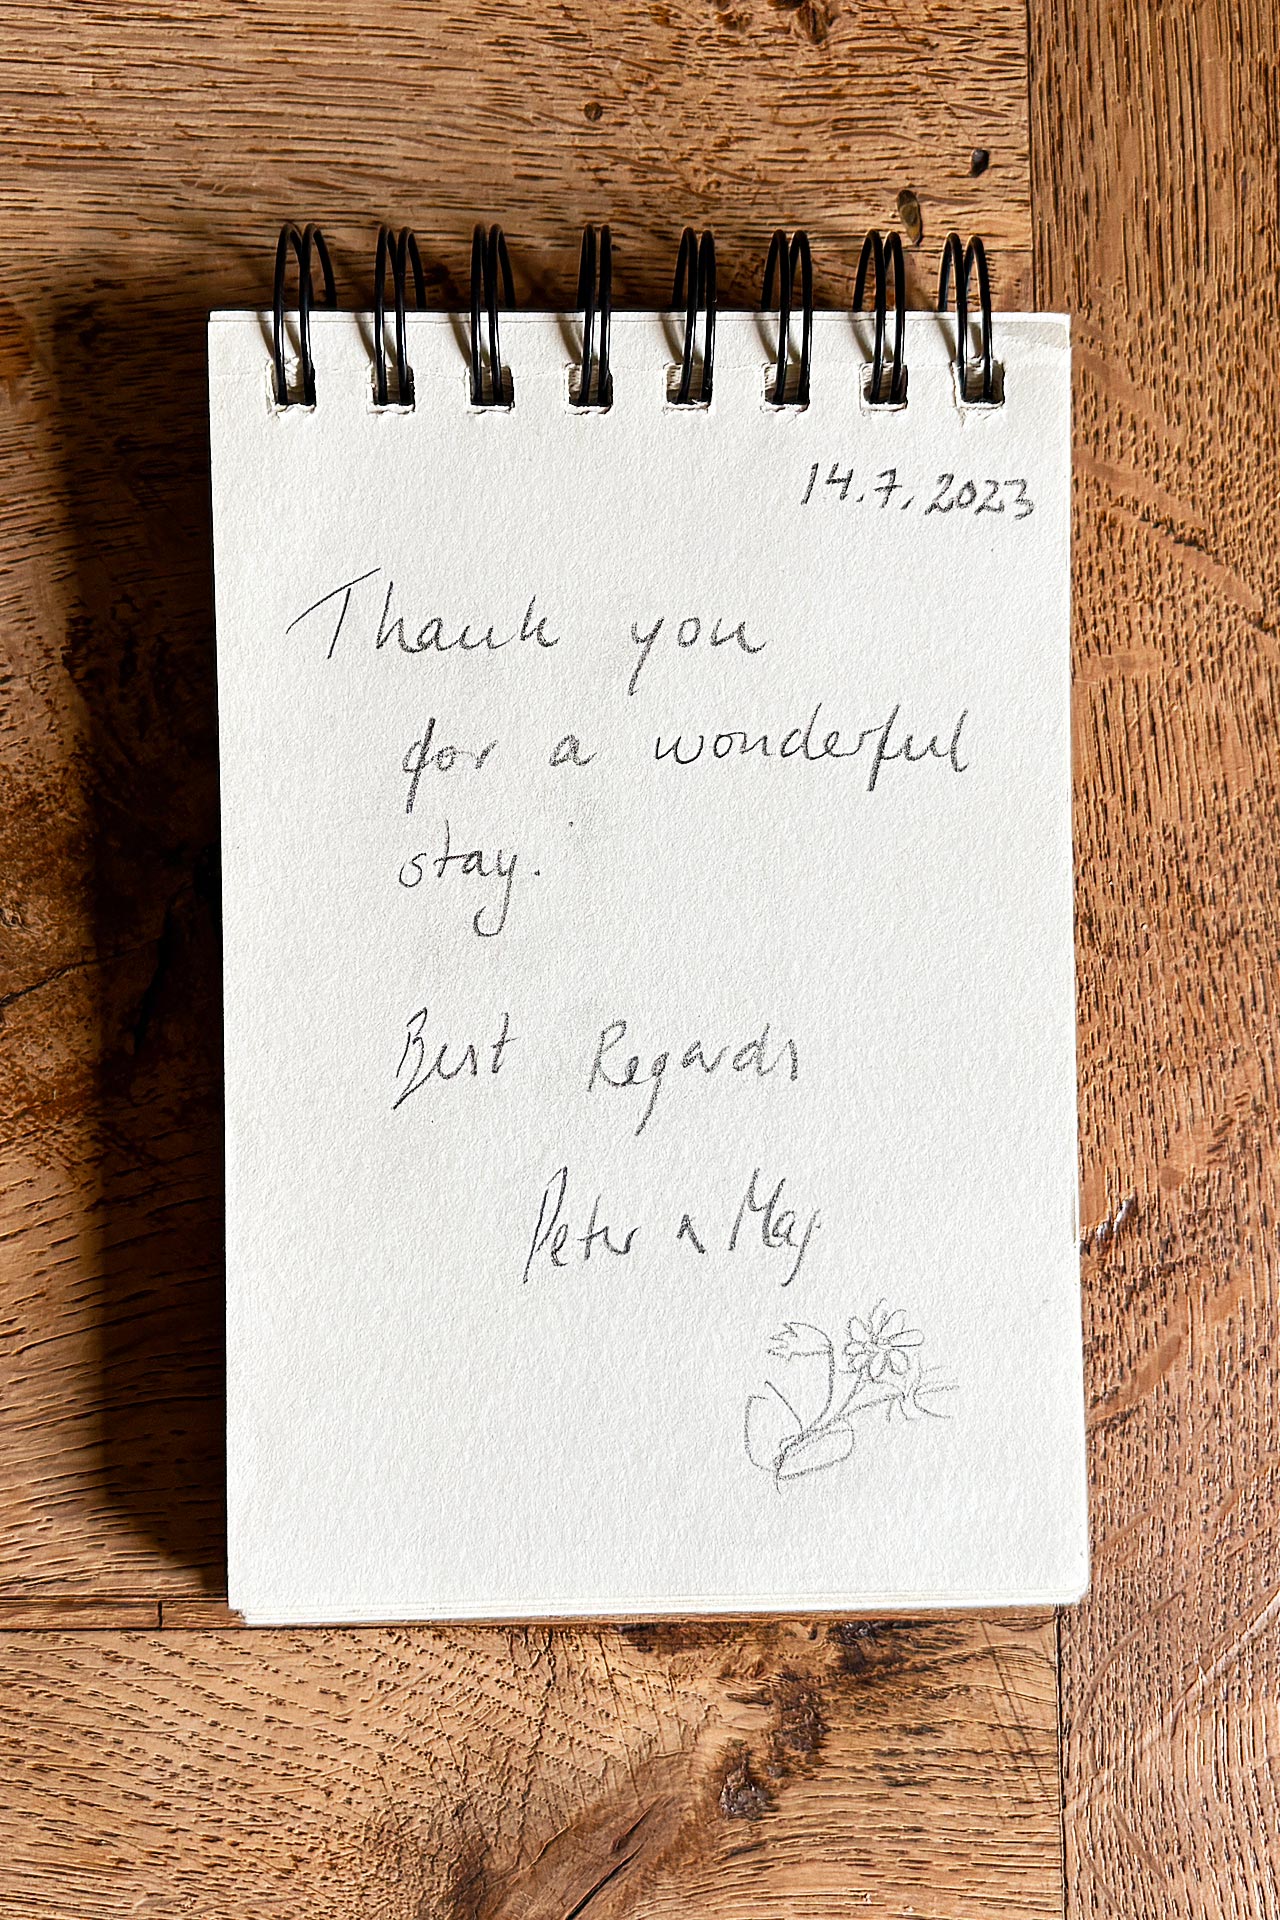 14.7.2023
Thank you
for a wonderful
stay.
Best Regards
Peter & May